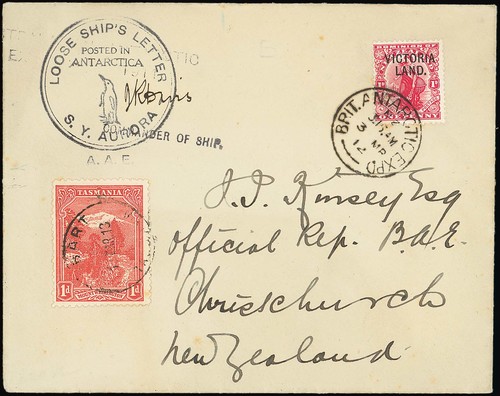 LOOSE SHIP'S LETTER
POSTED IN
ANTARCTICA
S.Y. AURORA
COMMANDER OF SHIP.
A.A.E.
VICTORIA
LAND.
BRIT. ANTARCTIC EXPD
MR
12
TASMANIA
1d 1d
J. J. Kinsey Esq
Official Rep. B.A.E.
Christchurch
New Zealand